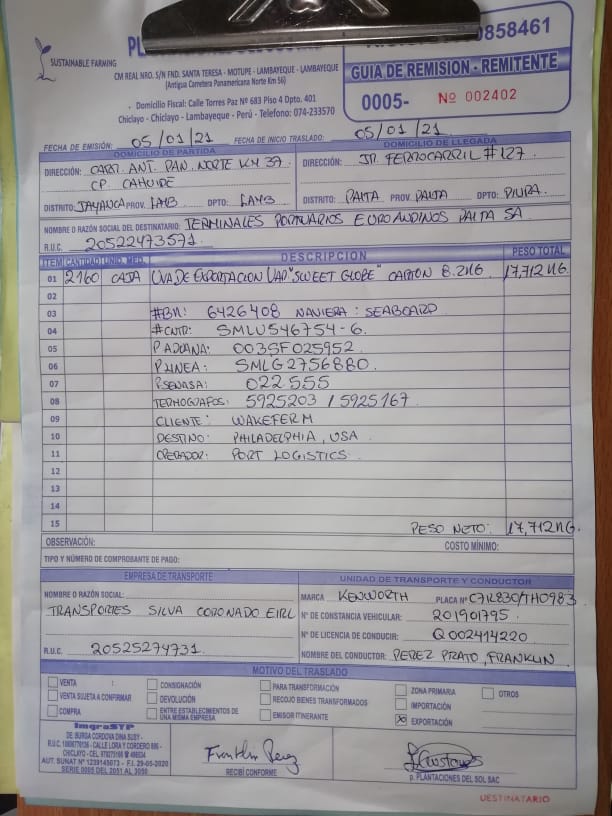 SUSTAINABLE FARMING
CM REAL NRO. S/N FND. SANTA TERESA - MOTUPE - LAMBAYEQUE - LAMBAYEQUE
(Antigua Carretera Panamericana Norte Km 56)
Domicilio Fiscal: Calle Torres Paz Nº 683 Piso 4 Dpto. 401
Chiclayo - Chiclayo - Lambayeque - Perú - Telefono: 074-233570
0858461
GUIA DE REMISION - REMITENTE
0005- Nº 002402
FECHA DE EMISIÓN: 05/01/21 FECHA DE INICIO TRASLADO: 05/01/21
DOMICILIO DE PARTIDA DOMICILIO DE LLEGADA
DIRECCIÓN: CARR. ANT. PAN. NORTE KM 37 DIRECCIÓN: JR. FERROCARRIL #127
CP. CAHUIDE
DISTRITO: JAYANCA PROV. LAMB DPTO: LAMB DISTRITO: PAITA PROV. PAITA DPTO: PIURA
NOMBRE O RAZÓN SOCIAL DEL DESTINATARIO: TERMINALES PORTUARIOS EUROANDINOS PAITA SA
R.U.C. 20522473571
ITEM CANTIDAD UNID. MED. DESCRIPCION PESO TOTAL
01 2160 CAJA UVA DE EXPORTACION VAR "SWEET GLOBE" CARTON 8.2KG 17,712KG.
02
03 #BK: 6426408 NAVIERA: SEABOARD
04 #CNTR: SMLU546754-6
05 P.ADUANA: 003SF025952
06 P.LINEA: SMLG2756880
07 P.SENASA: 022555
08 TERMOGRAFOS: 5925203 / 5925167
09 CLIENTE: WAKEFERM
10 DESTINO: PHILADELPHIA, USA
11 OPERADOR: PORT LOGISTICS
12
13
14
15 PESO NETO: 17,712KG.
OBSERVACIÓN: COSTO MÍNIMO:
TIPO Y NÚMERO DE COMPROBANTE DE PAGO:
EMPRESA DE TRANSPORTE UNIDAD DE TRANSPORTE Y CONDUCTOR
NOMBRE O RAZÓN SOCIAL: MARCA KENWORTH PLACA Nº C7K830/TH0983
TRANSPORTES SILVA CORONADO EIRL Nº DE CONSTANCIA VEHICULAR: 201901795
Nº DE LICENCIA DE CONDUCIR: Q002414220
R.U.C. 20525274731 NOMBRE DEL CONDUCTOR: PEREZ PRATO, FRANKLIN
MOTIVO DEL TRASLADO
VENTA : CONSIGNACIÓN PARA TRANSFORMACIÓN ZONA PRIMARIA OTROS
VENTA SUJETA A CONFIRMAR DEVOLUCIÓN RECOJO BIENES TRANSFORMADOS IMPORTACIÓN
COMPRA ENTRE ESTABLECIMIENTOS DE UNA MISMA EMPRESA EMISOR ITINERANTE X EXPORTACIÓN
ImgraSYP
DE: BURGA CORDOVA DINA SUSY
CHICLAYO
AUT. SUNAT Nº 1239145073 - F.I. 29-05-2020
SERIE 0005 DEL 2051 AL 3050
Franklin Perez
RECIBÍ CONFORME
p. PLANTACIONES DEL SOL SAC
DESTINATARIO